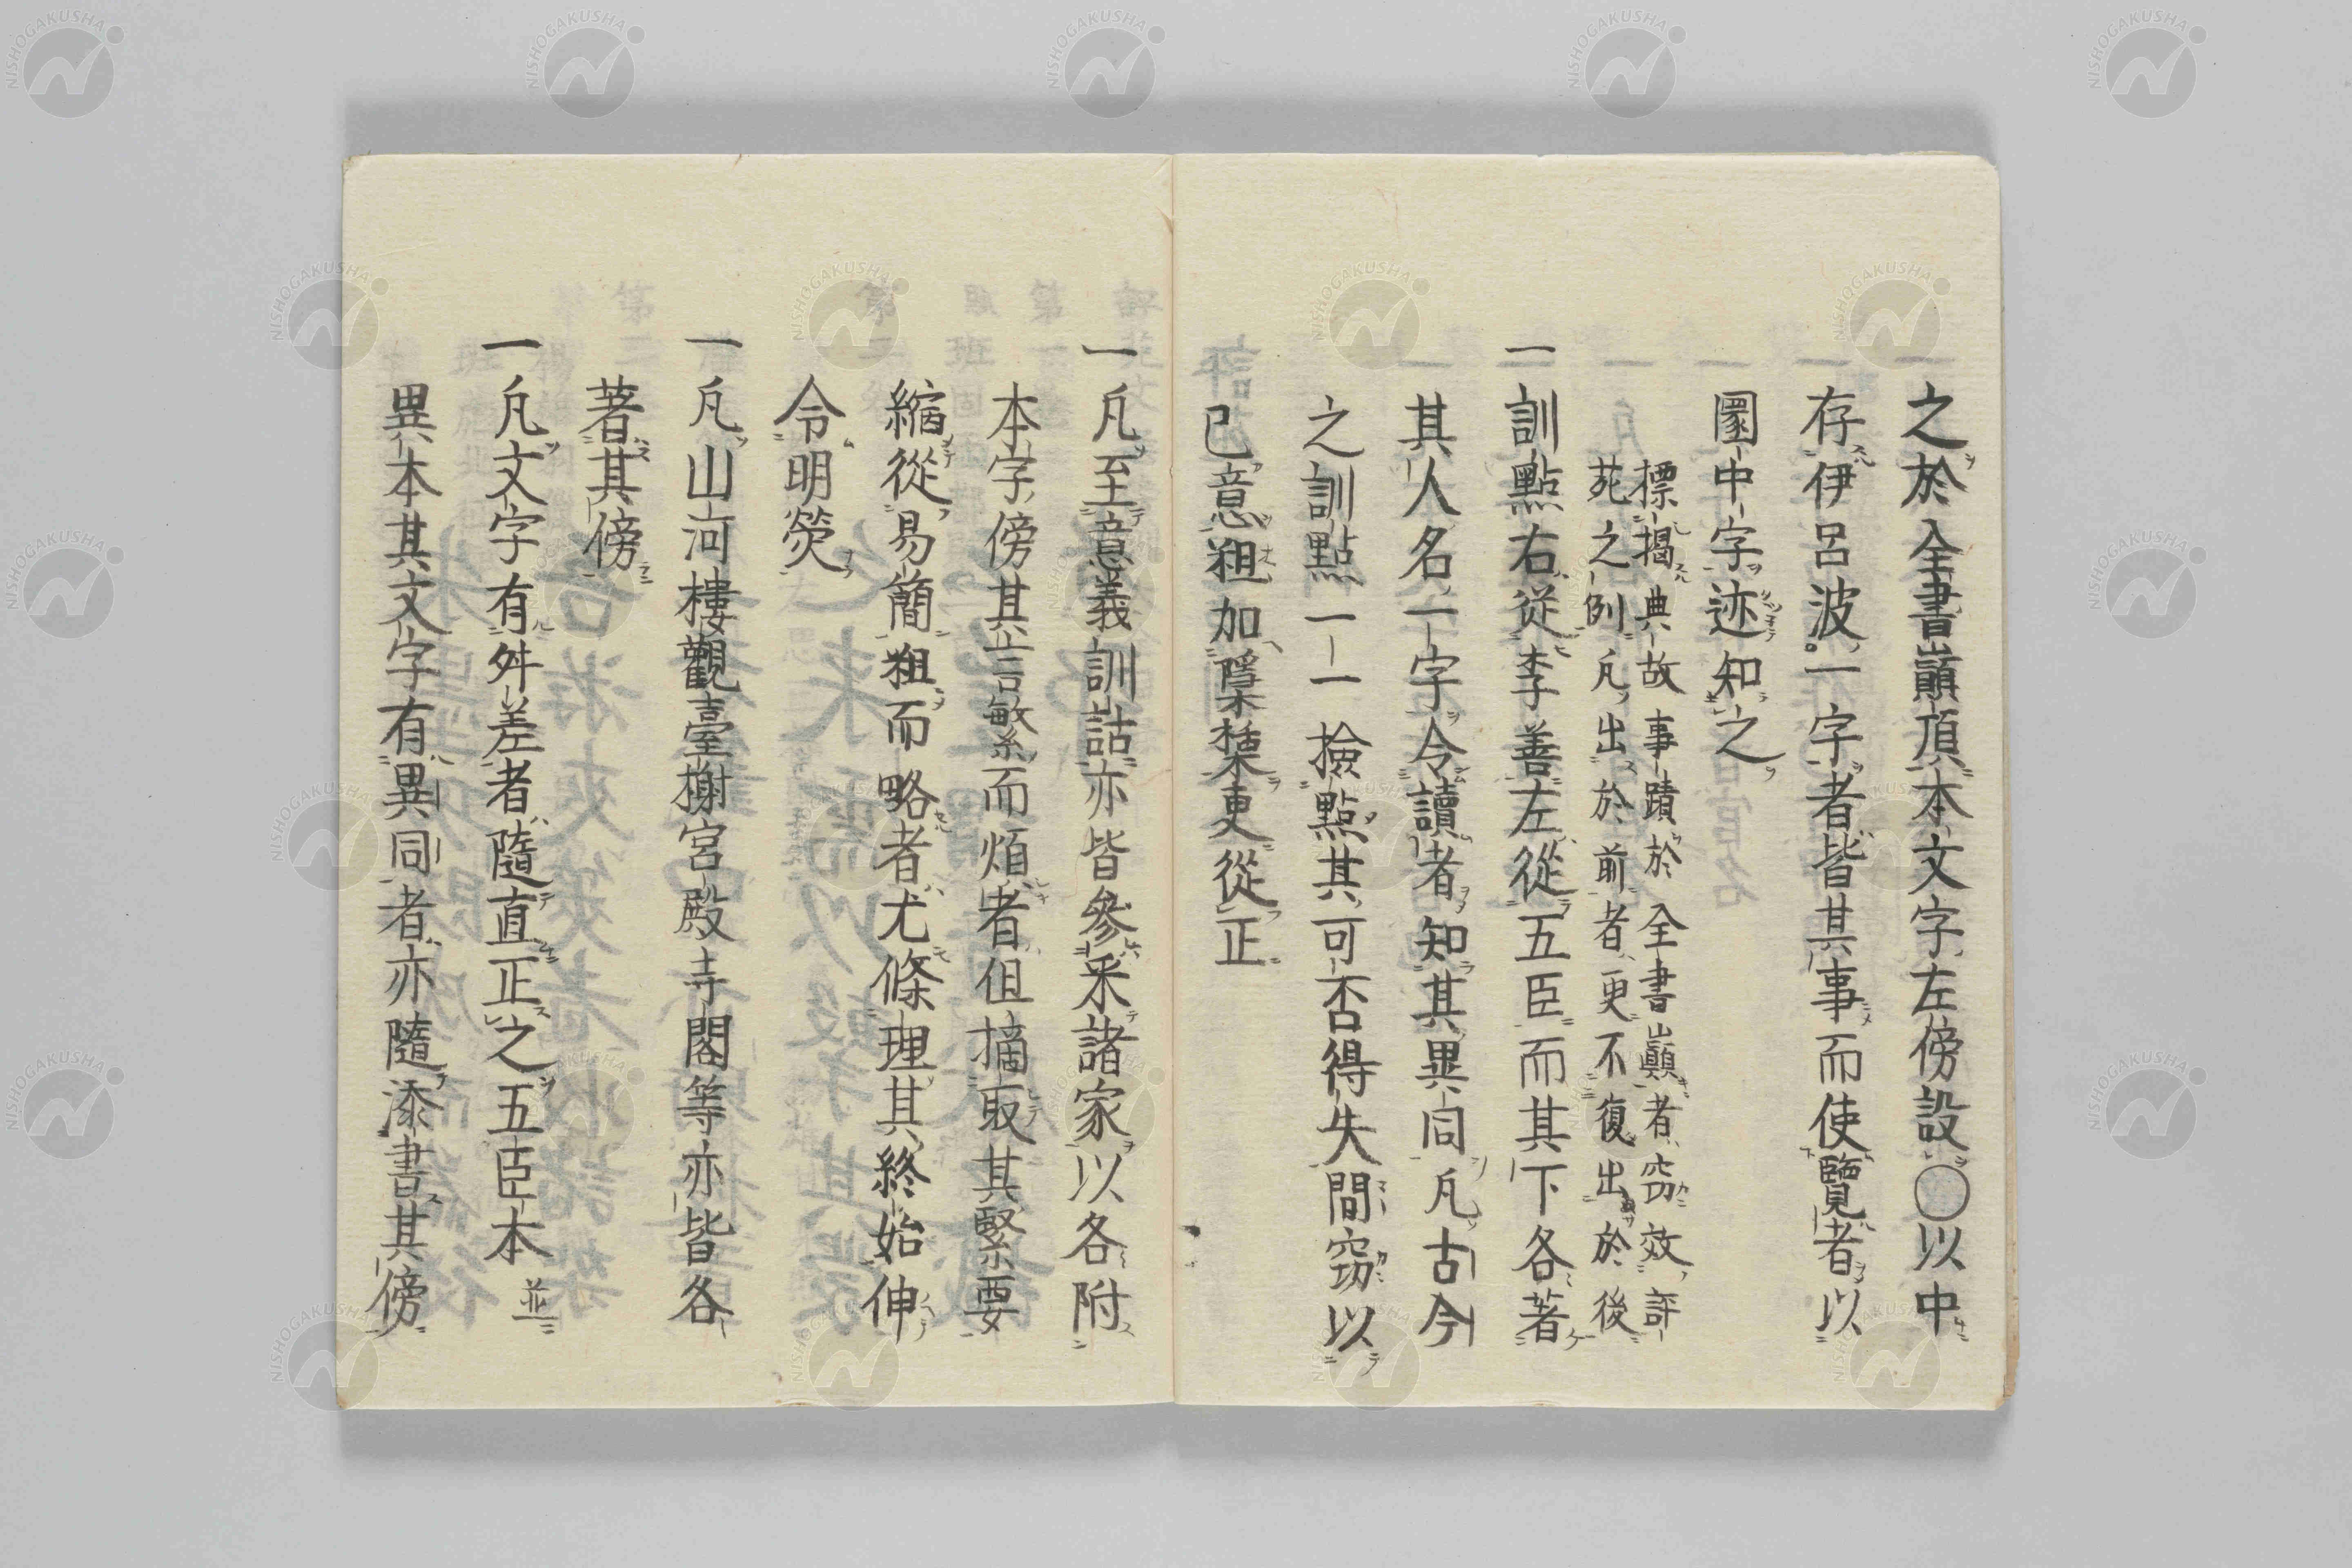 之於全書巓頂本文字左傍設〇以中
存伊呂波一字者皆其事而使覽者以
圏中字迹知之
標揭典故事蹟於全書巓者窃效評
苑之例凡出於前者更不復出於後
一訓點右從李善左從五臣而其下各著
其人名一字令讀者知其異同凡古今
之訓點一一撿點其可否得失間窃以
已意粗加檃𣝛更從正
一凡至意義訓詁亦皆參采諸家以各附
本字傍其言繁而煩者但摘取其緊要
縮從易簡粗而略者尤條理其終始伸
令明熒
一凡山河樓觀臺榭宮殿寺閣等亦皆各
著其傍
一凡文字有舛差者隨直正之五臣本並
異本其文字有異同者亦隨添書其傍
NISHOGAKUSHA